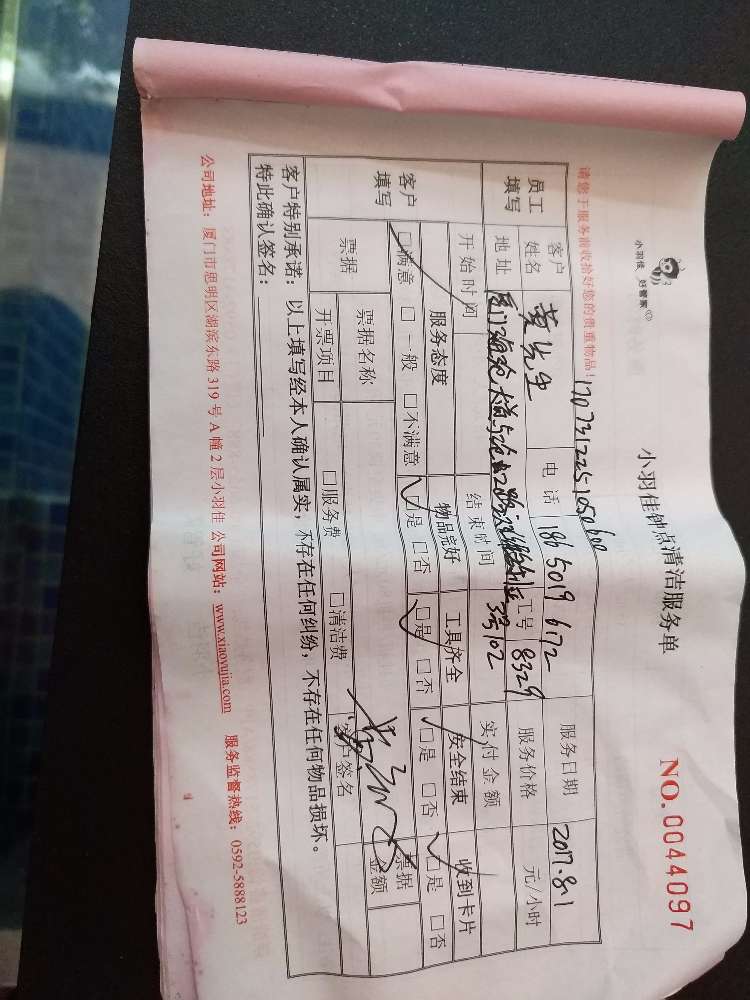 小羽佳 好管家
小羽佳钟点清洁服务单
NO.0044097
请您于服务前收拾好您的贵重物品!
170731225105060
员工填写 客户姓名 黄先生 电话 18650196172 服务日期 2017.8.1
地址 工号 8329 服务价格 元/小时
3号102
开始时间 结束时间 实付金额
客户填写 服务态度 物品完好 工具齐全 安全结束 收到卡片
☑满意 □一般 □不满意 ☑是 □否 ☑是 □否 ☑是 □否 ☑是 □否
票据 票据名称 □服务费 □清洁费 客户签名 票据金额
开票项目
客户特别承诺:以上填写经本人确认属实,不存在任何纠纷,不存在任何物品损坏。
特此确认签名:
公司地址:厦门市思明区湖滨东路 319 号 A 幢 2 层小羽佳 公司网站:www.xiaoyujia.com 服务监督热线:0592-5888123